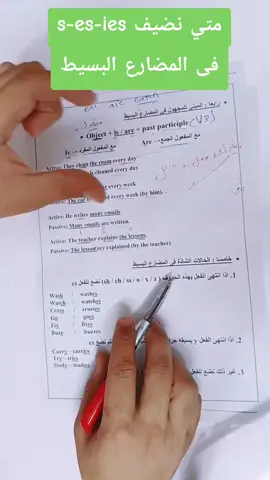 متي نضيف s-es-ies
فى المضارع البسيط
eat are
رابعا : المبنى للمجهول فى المضارع البسيط
Object + is / are + past participle (V3)
مع المفعول المفرد Is مع المفعول الجمع Are
Active: They clean the room every day
is cleaned every day
every week
Passive: The car every week (by him).
Active: He writes many emails
Passive: Many emails are written.
Active: The teacher explains the lessons.
Passive: The lesson are explained (by the teacher)
خامسا : الحالات الشاذة فى المضارع البسيط
1. اذا انتهى الفعل بهذه الحروف (sh / ch / ss / o / x / z) نضع للفعل es
Wash / washes
Watch / watches
Cross / crosses
Go / goes
Fix / fixes
Buzz / buzzes
2. اذا انتهى الفعل y ويسبقه حرف نضع es
Carry – carries
Try – tries
Study – studies
3. غير ذلك نضع للفعل